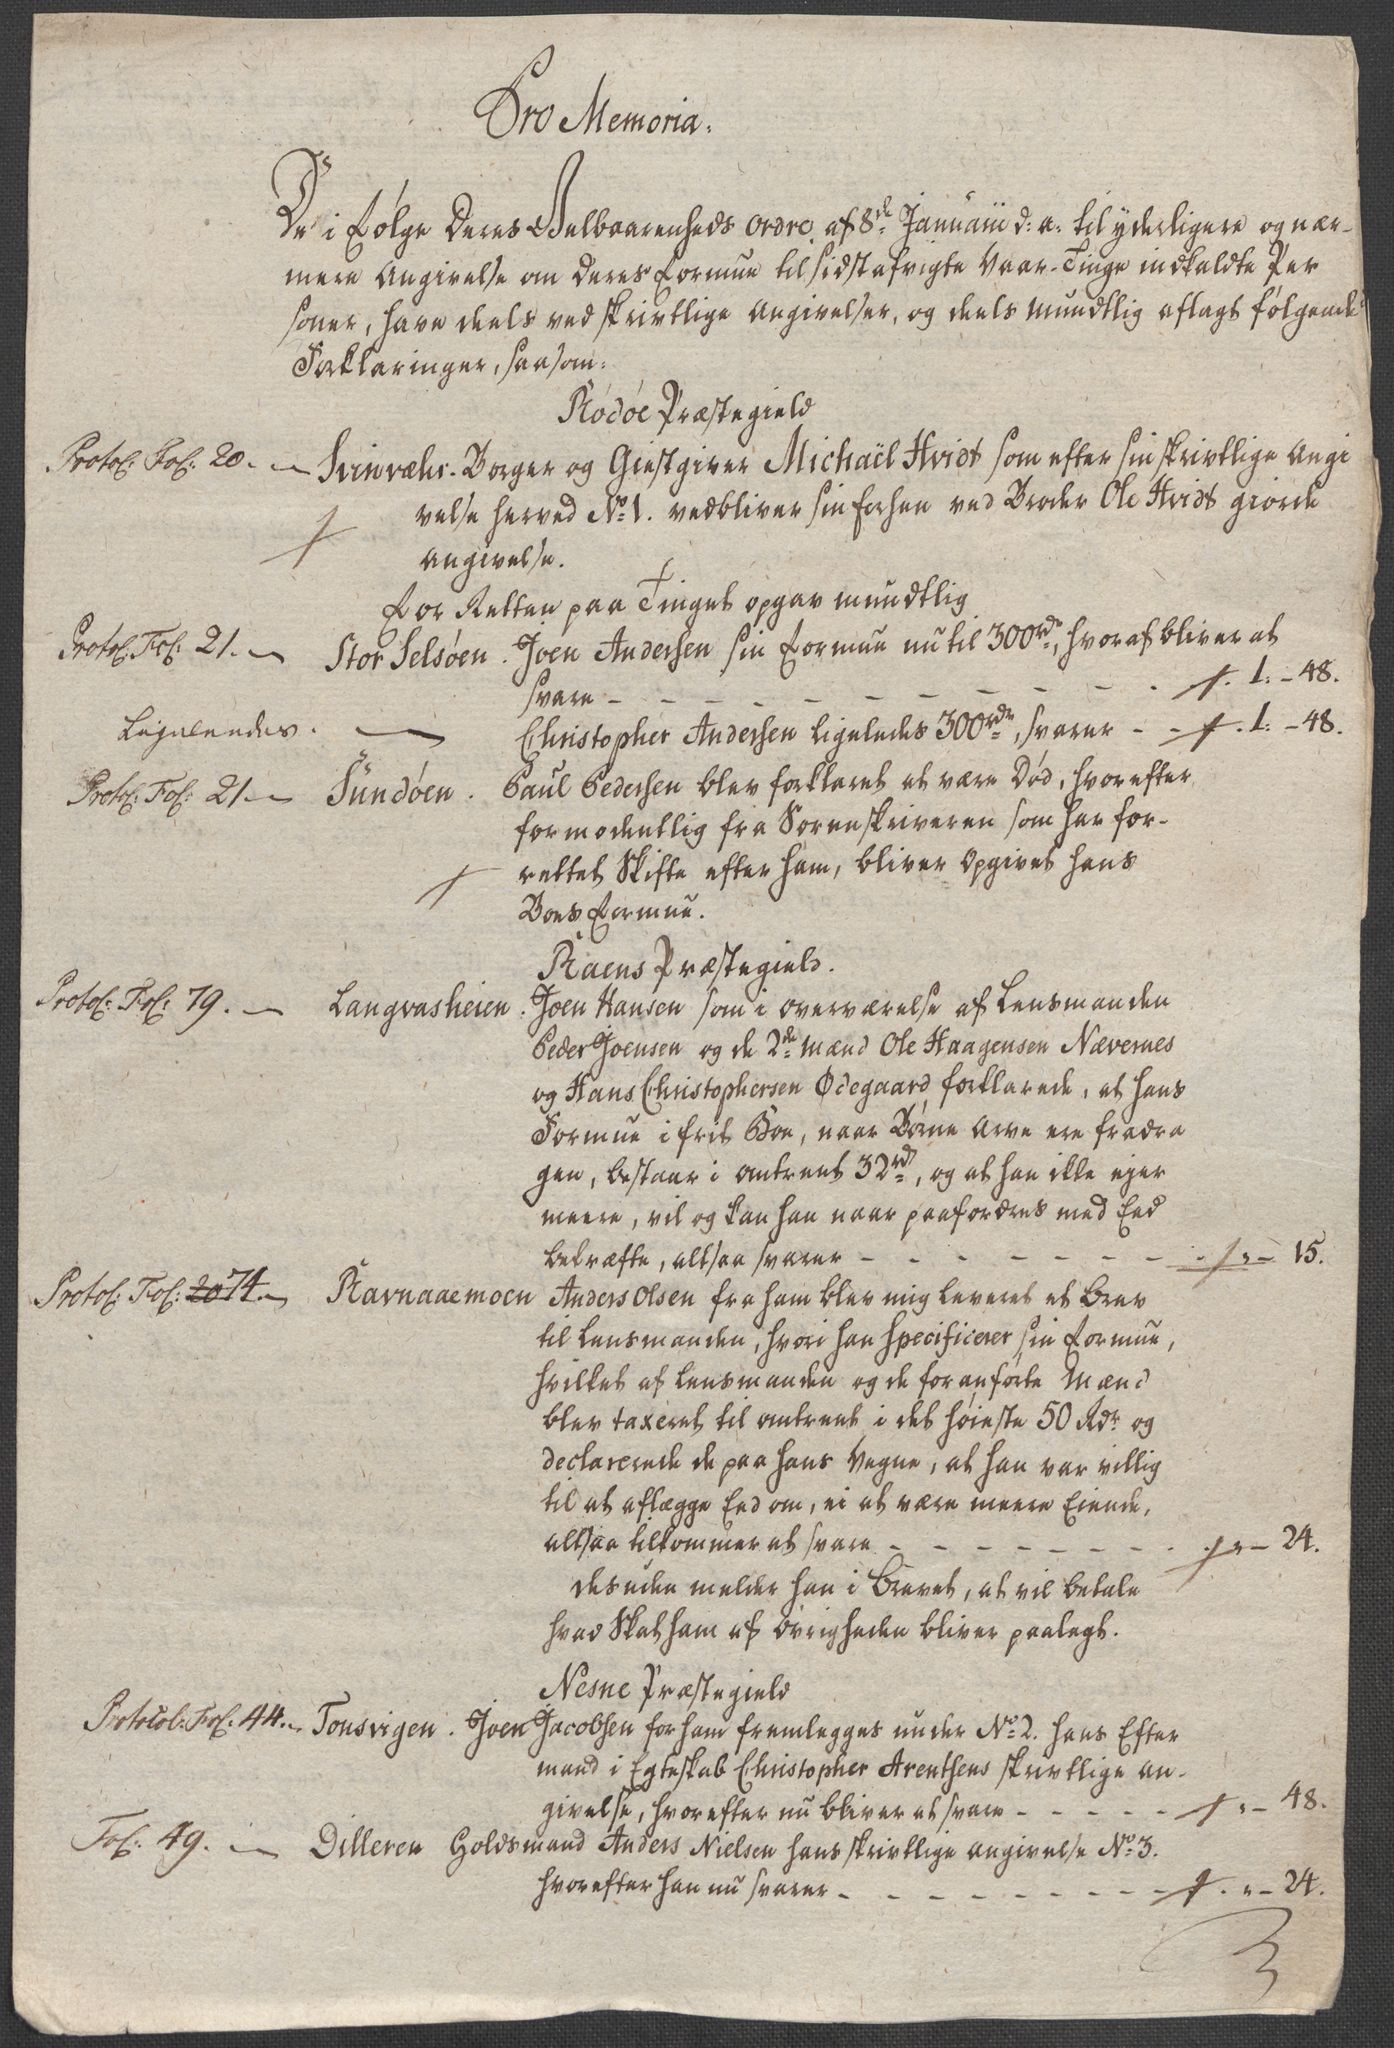 Pro Memoria.
De i Følge Deres Velbaarenheds Ordre af 8de Januarii d: a: til yderligere og nær-
mere Angivelse om deres Formue til sidstafvigte Vaar-Tinge indkaldte Per
soner, have deels ved skrivtlige Angivelser, og deels mundtlig aflagt følgende
Forklaringer, saasom:
Rødøe Præstegield
Protol: Fol: 20. Svinvær. Borger og Giestgiver Michaël Hvidt som efter sin skrivtlige Angi
velse herved No 1. vedbliver sin forhen ved Broder Ole Hvidt giorde
Angivelse.
For Retten paa Tinget opgav mundtlig
Protol: Fol: 21. Stor Selsøen. Joen Andersen sin Formue nu til 300rd, hvoraf bliver at
svare - - - 1: - 48.
Ligeleedes. Christopher Andersen ligeledes 300rdr, svarer - - 1: - 48.
Protol: Fol: 21 Sundøen. Paul Pedersen blev forklaret at være Død, hvorefter
formodentlig fra Sorenskriveren som har for-
rettet Skifte efter ham, bliver Opgivet hans
Boes Formue.
Raens Præstegield.
Protol: Fol: 79. Langvasheien. Joen Hansen som i Overværelse af Lensmanden
Peder Joensen og de 2de Mænd Ole Haagensen Nævernes
og Hans Christophersen Ødegaard forklarede, at hans
Formue i frit Boe, naar Børne Arve ere fradra
gen, bestaar i omtrent 32rd, og at han ikke ejer
meere, vil og kan han naar paafordres med Eed
bekræfte, altsaa svarer - - - " - 15.
Protol: Fol: 20 74. Ravnaaemoen Anders Olsen fra ham blev mig leveret et Brev
til Lensmanden, hvori han specificerer sin Formue,
hvilket af Lensmanden og de foranførte Mænd
blev taxeret til omtrent i det høieste 50 Rdr og
declarerede de paa hans Vegne, at han var villig
til at aflægge Eed om, ei at være meere Eiende,
altsaa tilkommer at svare - - - " - 24.
desuden melder han i Brevet, at vil betale
hvad Skat ham af Øvrigheden bliver paalagt.
Nesne Præstegield
Protocol: Fol: 44. Tonsvigen. Joen Jacobsen for ham fremlegges under No 2. hans Efter
mand i Egteskab Christopher Arentsens skrivtlige An-
givelse, hvorefter nu bliver at svare - - - " - 48.
Fol: 49. Dilleren Goldsmand Anders Nielsen hans skrivtlige Angivelse No 3.
hvorefter han nu svarer - - - " - 24.